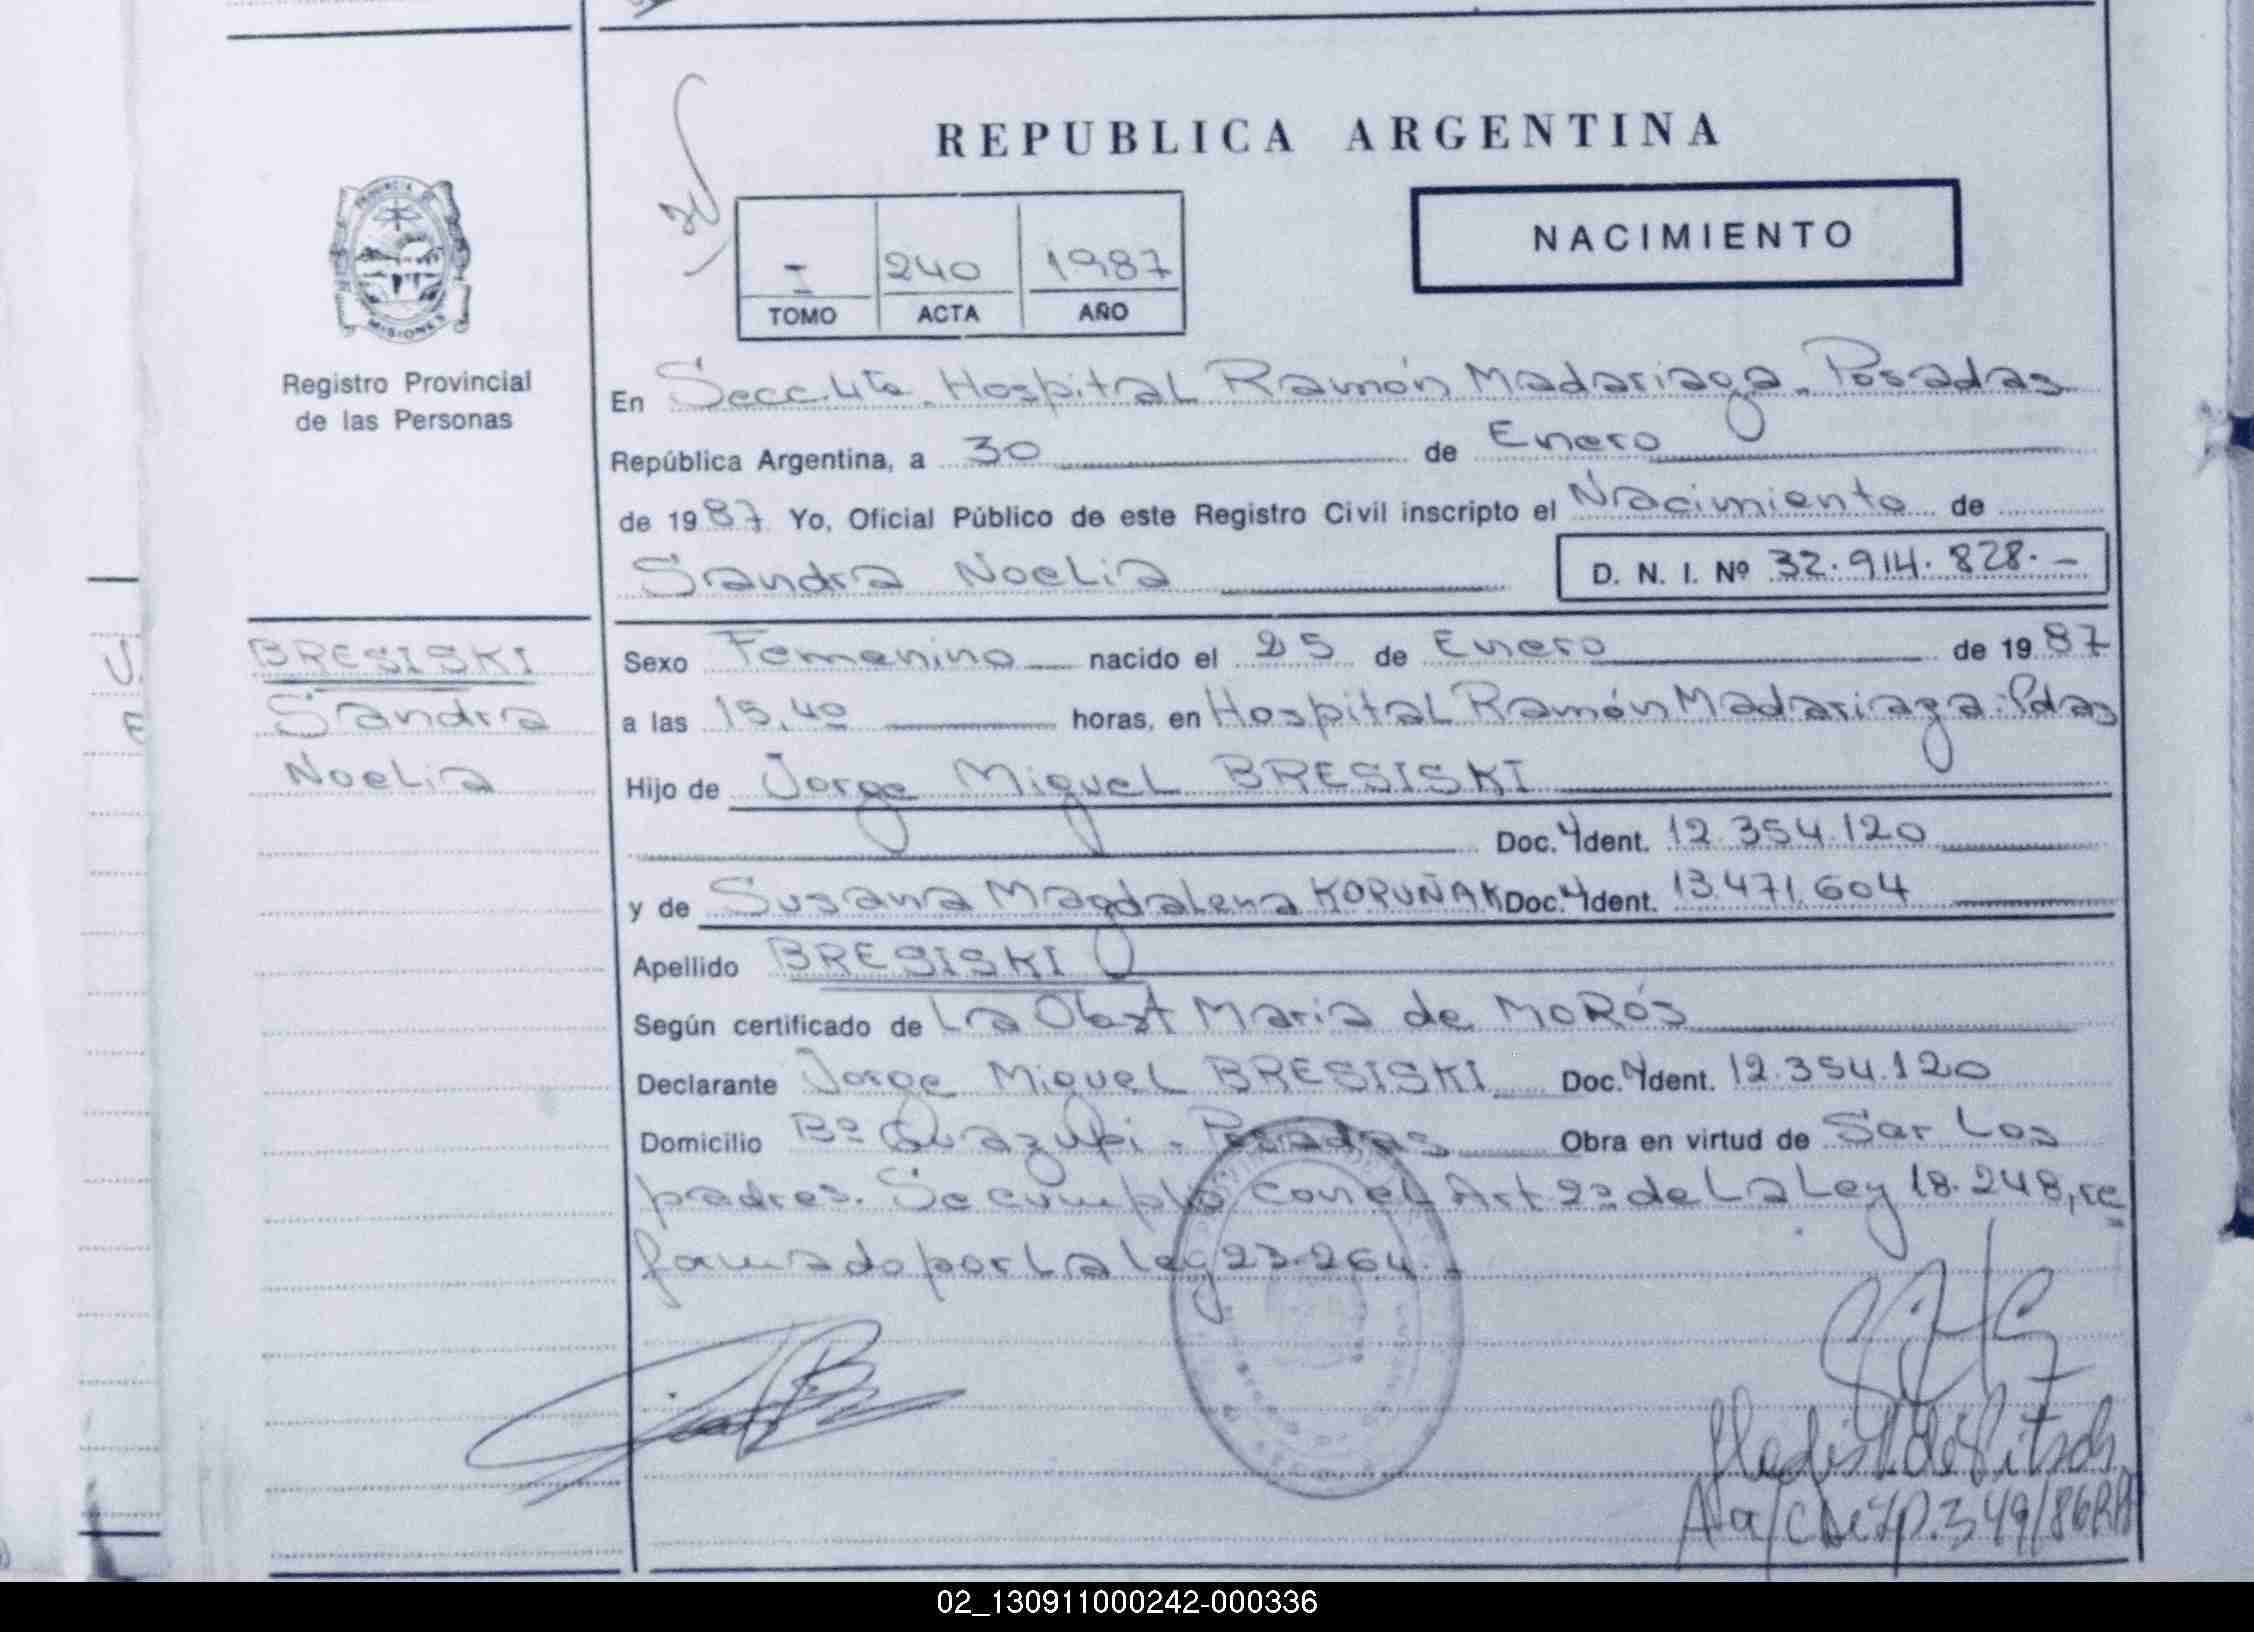 REPUBLICA ARGENTINA
NACIMIENTO
I 240 1987
TOMO ACTA AÑO
PROVINCIA DE
MISIONES
Registro Provincial
de las Personas
En Secc. 4ta. Hospital Ramón Madariaga. Posadas
República Argentina, a 30 de Enero
de 1987 Yo, Oficial Público de este Registro Civil inscripto el Nacimiento de
Sandra Noelia D. N. I. Nº 32.914.828.-
BRESISKI
Sandra
Noelia
Sexo Femenino nacido el 25 de Enero de 1987
a las 15,40 horas, en Hospital Ramón Madariaga. Pdas
Hijo de Jorge Miguel BRESISKI
Doc. Ident. 12.354.120
y de Susana Magdalena KORUÑAK Doc. Ident. 13.471.604
Apellido BRESISKI
Según certificado de La Obst Maria de MoRós
Declarante Jorge Miguel BRESISKI Doc. Ident. 12.354.120
Domicilio Bº Posadas Obra en virtud de Ser Los
padres. Se cumplió con el Art 2º de La Ley 18.248, re
formado por La Ley 23.264.-
02_130911000242-000336